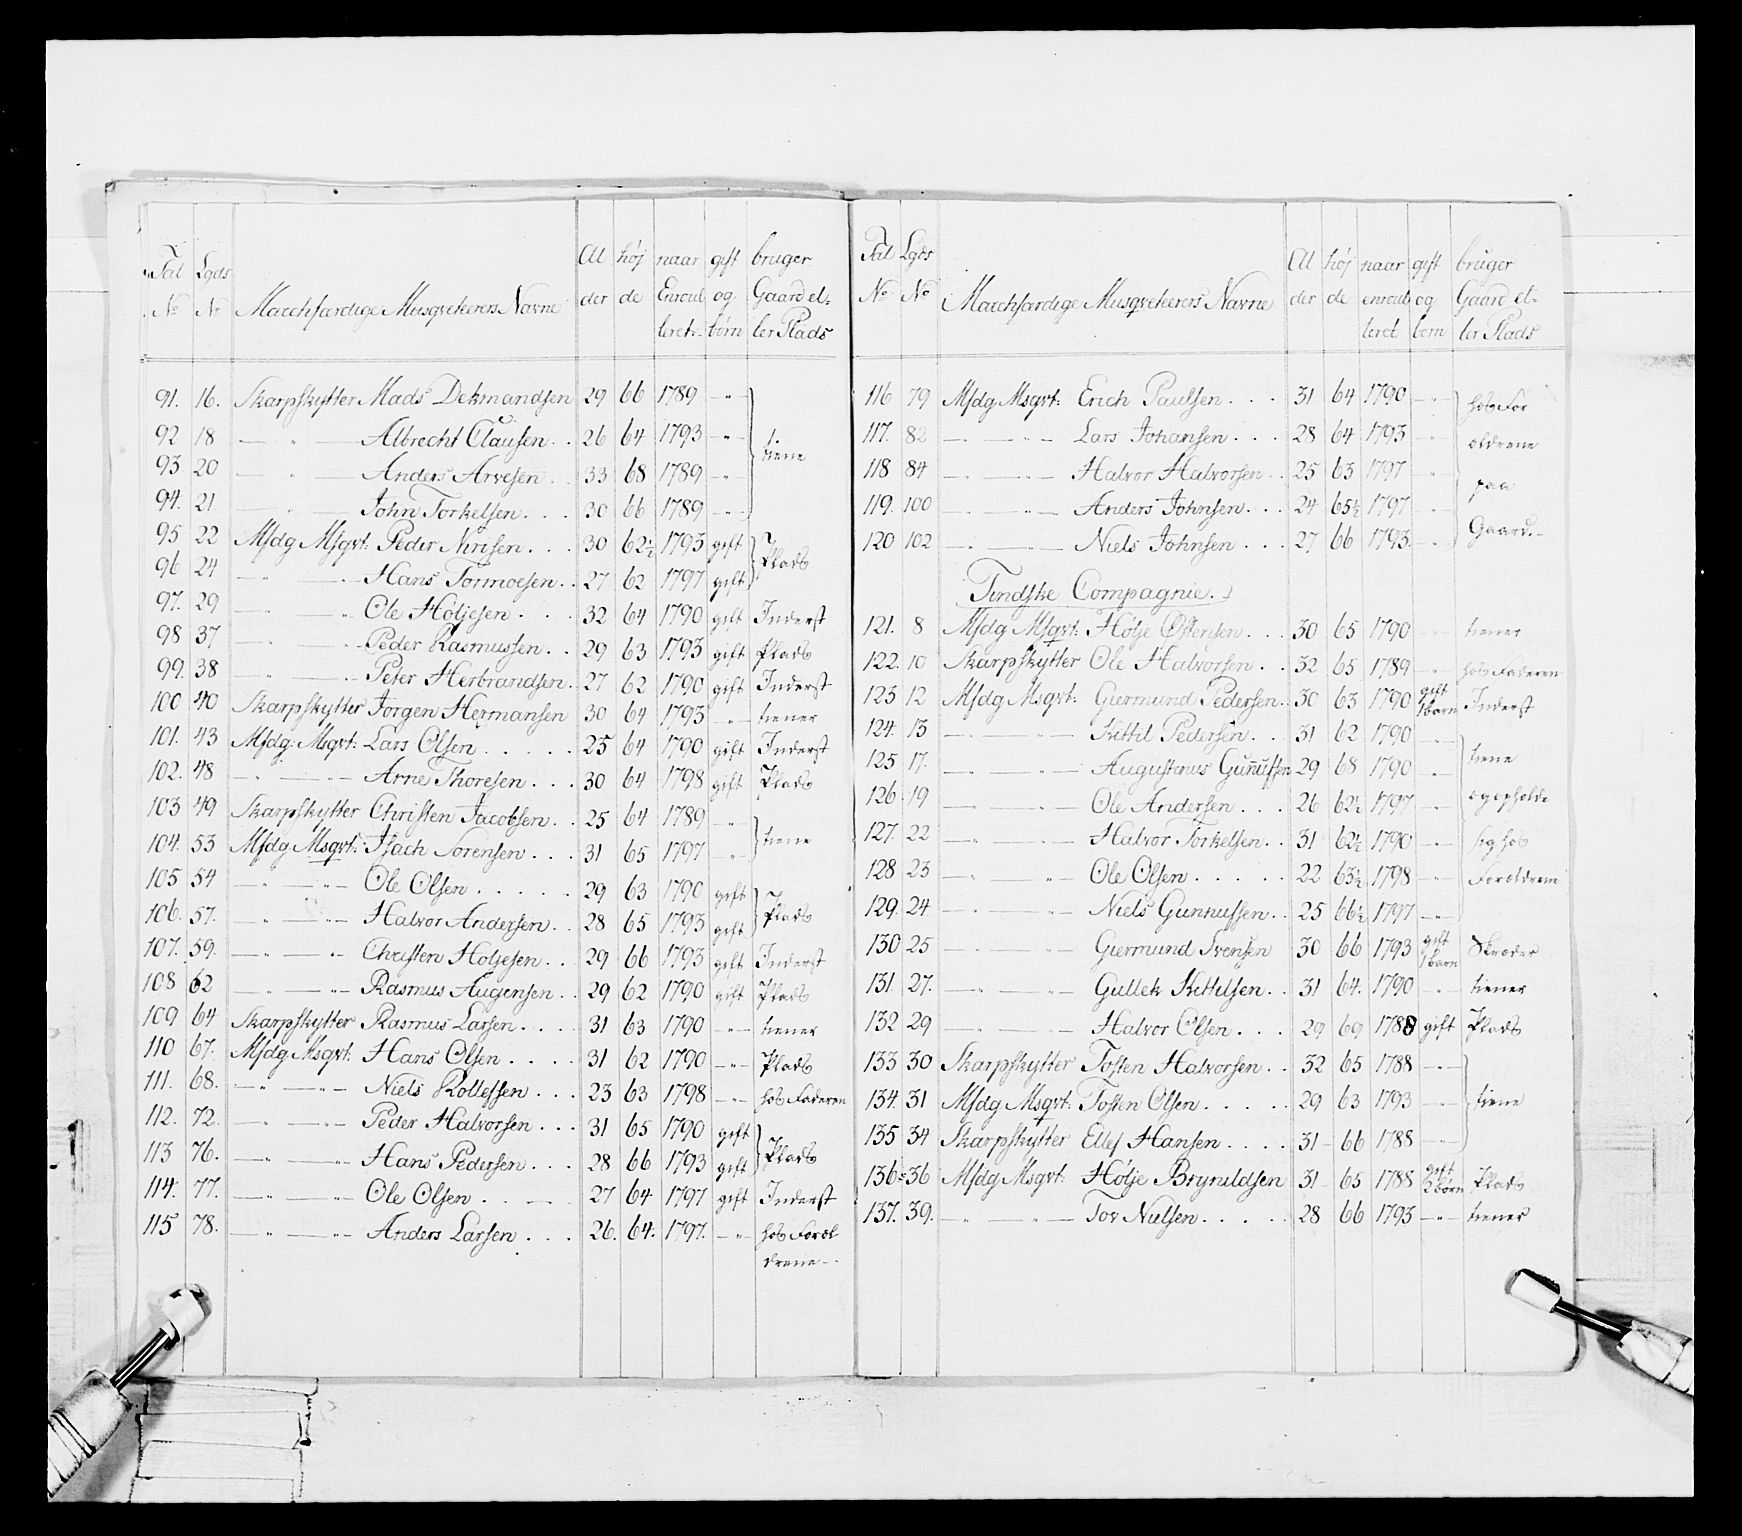 Tal Lgds Al høj naar gift bruger
No No Marchfærdige Musqveterers Navne der de Enroul og Gaard el-
leret børn ler Plads
91. 16. Skarpskytter Mads Dekmandsen 29 66 1789 - " -
92 18 — " — Albrecht Clausen . . 26 64 1793 - " - tiene
93. 20 — " — Anders Arvesen . . 33 68 1789 - " -
94. 21 — " — John Torkelsen . . . 30 66 1789 - " -
95 22 Msdg Msqvt: Peder Nirisen . . . 30 62½ 1793 gift Plads
96 24 — " — " — Hans Tormoesen . . 27 62 1797 gift
97. 29 — " — " — Ole Höljesen . . . 32 64 1790 gift Inderst
98 37 — " — " — Peder Rasmussen . . 29 63 1793 gift Plads
99. 38 — " — " — Peter Herbrandsen . 27 62 1790 gift Inderst
100 40 Skarpskytter Jörgen Hermansen 30 64 1793 - " - tiener
101. 43 Msdg: Msqvt: Lars Olsen . . . . . 25 64 1790 gift Inderst
102. 48 — " — " — Arne Thoresen . . . 30 64 1798 gift Plads
103 49 Skarpskytter Christen Jacobsen . . 25 64 1789 - " - tiene
104. 53 Msdg Msqvt: Isach Sörensen . . . 31 65 1797 - " -
105 54 — " — " — Ole Olsen . . . . . 29 63 1790 gift Plads
106. 57. — " — " — Halvor Andersen . . 28 65 1793 gift
107. 59. — " — " — Christen Holjesen . . 29 66 1793 gift Inderst
108 62 — " — " — Rasmus Augensen . . 29 62 1790 gift Plads
109 64 Skarpskytter Rasmus Larsen . . . . 31 63 1790 - " - tiener
110 67. Msdg Msqvt: Hans Olsen . . . . 31 62 1790 - " - Plads
111. 68. — " — " — Niels Rollefsen . . . 23 63 1798 - " - hos Faderen
112. 72. — " — " — Peder Halvorsen . . . 31 65 1790 gift Plads
113 76. — " — " — Hans Pedersen . . . 28 66 1793 gift
114. 77. — " — " — Ole Olsen . . . — 27 64 1797 gift Inderst
115 78. — " — " — Anders Larsen . . . 26. 64. 1797. - " - hos Foræl
drene -
Tal Lgds Al høj naar gift bruger
No No Marchfærdige Musqveterers Navne der de enroul og Gaard el-
leret børn ler Plads
116 79 Msdg Msqvt: Erich Paulsen . . . 31 64 1790 - " - hos For
117. 82 — " — " — Lars Johansen . . . 28 64 1793 - " - ældrene
118 84 — " — " — Halvor Halvorsen . . 25 63 1797 - " - paa
119. 100 — " — " — Anders Johnsen . . . 24 65½ 1797 - " -
120 102 — " — " — Niels Johnsen . . . 27 66 1793. - " - Gaard. -
Tindske Compagnie.
121. 8 Msdg Msqvt: Hölje Østensen . . . 30 65 1790 - " - tiener
122. 10 Skarpskytter Ole Halvorsen . . 32 65 1789 - " - hos Faderen
123 12 Msdg Msqvt: Giermund Pedersen . . 30 63 1790 gift 1 barn Inderst
124. 13 — " — " — Kittil Pedersen . . 31 62 1790 - " -
125 17. — " — " — Augustinus Gunnufsen 29 68 1790 - " - tiene
126 19 — " — " — Ole Andersen . . . 26 62½ 1797 - " - og opholde
127. 22 — " — " — Halvor Torkelsen . . 31 62½ 1790 - " - sig hos
128 23 — " — " — Ole Olsen . . . . . 22 63½ 1798 - " - Forældrene
129. 24 — " — " — Niels Gunnufsen . . 25 66½ 1797 - " -
130 25 — " — " — Giermund Svensen 30 66 1793 gift 1 barn Skræder
131. 27. — " — " — Gullek Kittilsen . . 31 64. 1790 - " - tiener
132 29 — " — " — Halvor Olsen . . . 29 69 1788 gift Plads
133 30 Skarpskytter Tosten Halvorsen . . 32 65 1788 - " -
134. 31 Msdg Msqvt: Tosten Olsen . . . . . 29 63 1793 - " - tiene
135 34 Skarpskytter Ellef Hansen . . . . 31 - 66 1788 - " -
136 - 36 Msdg Msqvt: Hölje Brynildsen 31 - 65 1788 gift 2 børn Plads
137. 39. — " — " — Tov Nielsen . . . . . 28 66 1793 - " - tiener